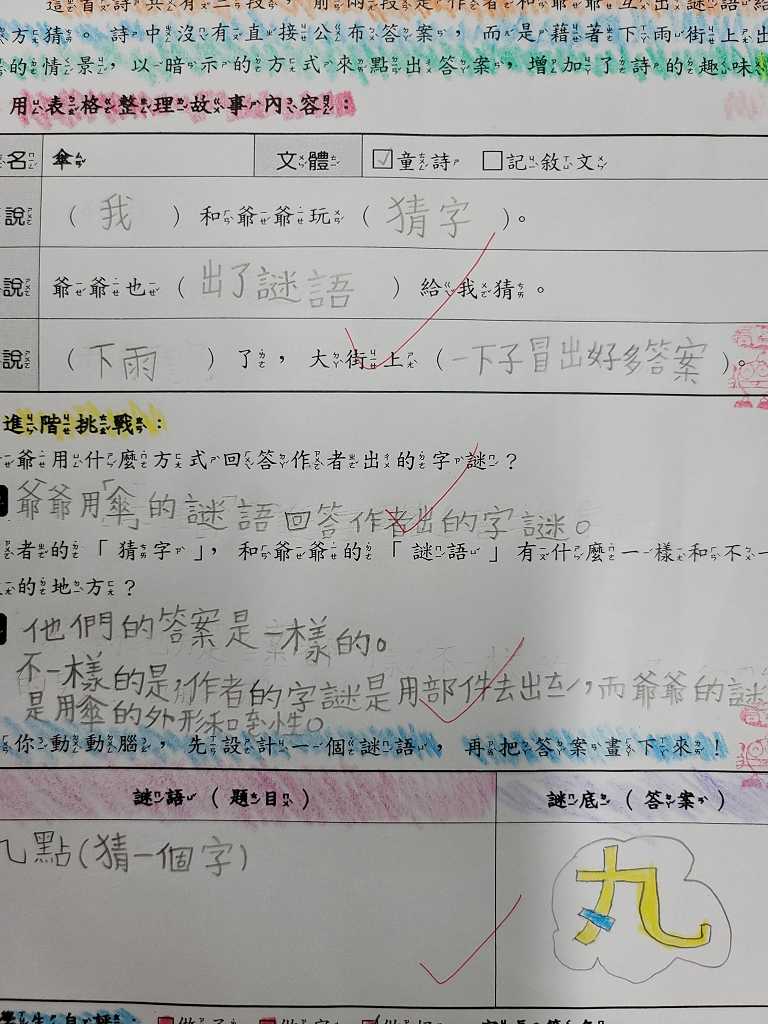 這首詩共有三段，前兩段是作者和爺爺互出謎語給
方猜。詩中沒有直接公布答案，而是藉著下雨街上出
的情景，以暗示的方式來點出答案，增加了詩的趣味
用表格整理故事內容：
名 傘 文體 ☑童詩 □記敘文
說 （我）和爺爺玩（猜字）。
說 爺爺也（出了謎語）給我猜。
說 （下雨）了，大街上（一下子冒出好多答案）。
進階挑戰：
爺用什麼方式回答作者出的字謎？
爺爺用「傘」的謎語回答作者出的字謎。
者的「猜字」，和爺爺的「謎語」有什麼一樣和不一
的地方？
他們的答案是一樣的。
不一樣的是，作者的字謎是用部件去出ㄊㄧˊ，而爺爺的謎
是用傘的外形和ㄊㄜˋ性。
你動動腦，先設計一個謎語，再把答案畫下來！
謎語（題目） 謎底（答案）
九點(猜一個字) 丸
學生自評：